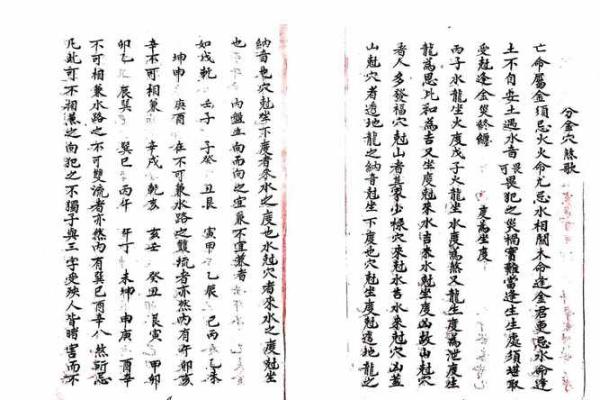 分金穴煞歌
亡命屬金須忌火火命尤忌水相關木命逢金君更忌水命逢
土不自安土遇水音可畏犯之災禍實難當逢生生處須堪取
受尅逢金災終纏
度為坐度
丙子水龍坐火度戊子火龍坐水度為煞又龍生度為泄度生
龍為恩比和為吉又坐度尅來水吉來水尅坐度凶故山尅穴
者人多發福穴尅山者其家少祿穴來尅水吉水來尅穴凶蓋
山尅穴者透地龍之納音尅坐下度也穴尅山坐度尅透地龍之
納音也穴尅坐不度者來水之度也水尅穴者來水之度尅坐
也 內盤立向而向之宜兼不宜兼者
如戌乾 壬子 子癸 丑艮 寅甲 乙辰 巳丙 未
坤申 庚酉 在不可兼水路之雙流者亦然內有午卯亥
辛不可相兼 辛戌 乾亥 亥壬 癸丑 艮寅 甲卯
卯乙 辰巽 巽巳 丙午 午丁 未坤 申庚 酉辛
不可相兼水路之不可雙流者亦然內有巽巳酉辛八煞所忌
凡此可不相兼之向犯之不獨子與三字受殃人皆時害而不